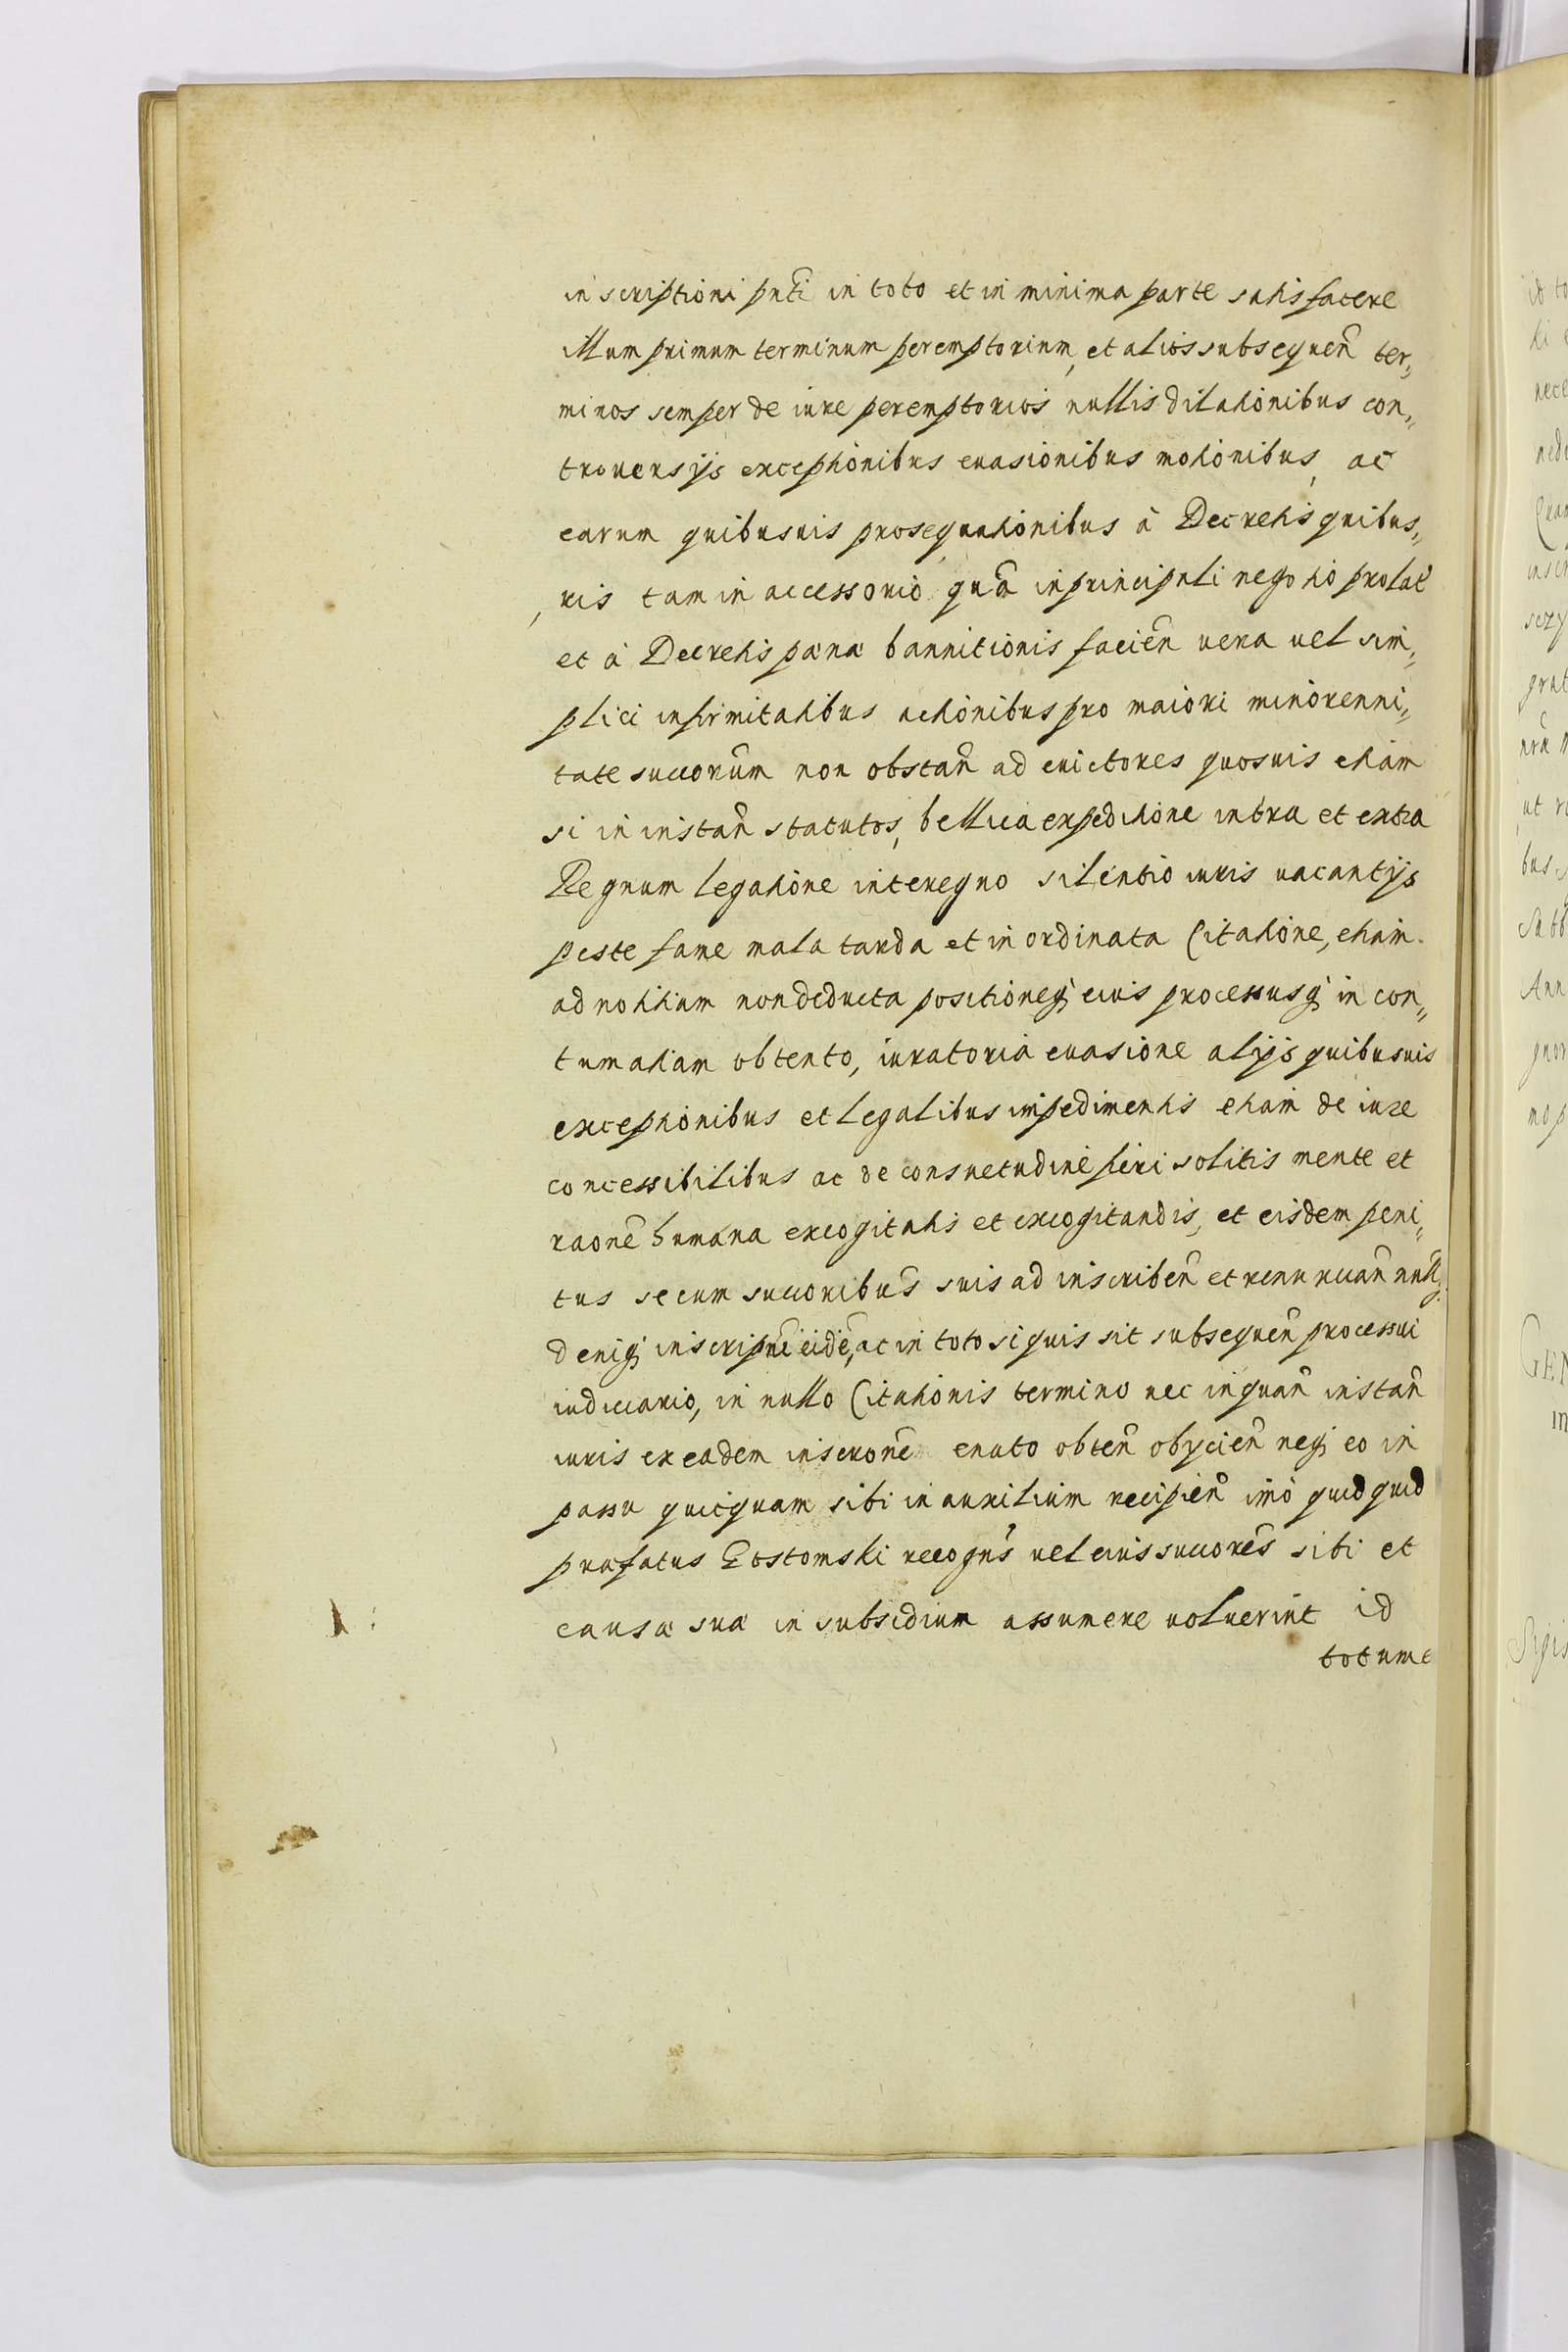 inscriptioni pnti in toto et in minima parte satisfacere
illum primum terminum peremptorium, et alios subsequen̄ ter„
minos semper de iure peremptorios nullis dilationibus con„
trouersijs exceptionibus euasionibus motionibus, ac
earum quibusuis prosequutionibus à Decretis quibus„
uis tam in accessorio quā in principali negotio prolat
et à Decretis pœnæ bannitionis facien̄ vera vel sim„
plici infirmitatibus actionibus pro maiori minorenni„
tate succorum non obstan̄ ad euictores quosuis etiam
si in instan̄ statutos, bellica expeditione intra et extra
Regnum legatione interegno silentio iuris vacantijs
peste fame mala tarda et inordinata Citatione, etiam
ad notitiam non deducta positioneq; eius processusq; in con„
tumatiam obtento, iuratoria euasione alijs quibusuis
exceptionibus et legalibus impedimentis etiam de iure
concessibilibus ac de consuetudine fieri solitis mente et
raone humana excogitatis et excogitandis, et eisdem peni„
tus se cum succoribus suis ad inscriben̄ et renuncian̄
deniq; inscripni eidē, ac in toto si quis sit subsequen̄ processui
iudiciario, in nullo Citationis termino nec in quan̄ instan̄
iuris ex eadem inscrone enato obten̄ obijcien̄ neq; eo in
passu quicquam sibi in auxilium recipien̄ imò quidquid
præfatus Gostomski recogns vel eius succores sibi et
causæ suæ in subsidium assumere voluerint id
totum